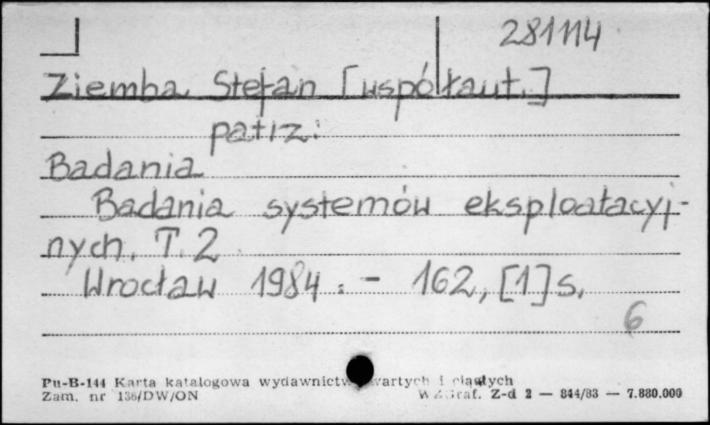 281114
Ziemba Stefan [współaut.]
patrz:
Badania
Badania systemów eksploatacyj-
nych. T. 2
Wrocław 1984. - 162, [1] s.
6
Pu-B-144 Karta katalogowa wydawnictw zwartych i ciągłych
Zam. nr 136/DW/ON WZGraf. Z-d 2 — 844/83 — 7.880.000